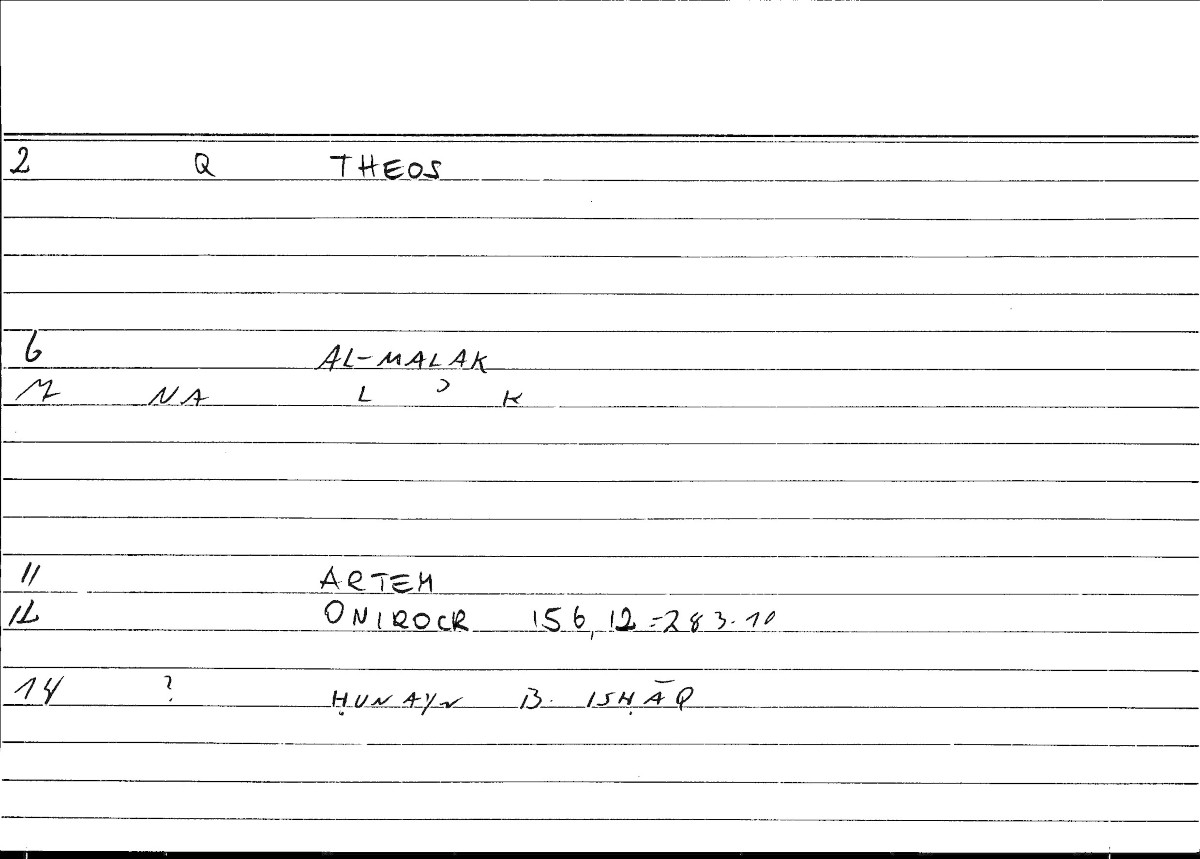 2 Q THEOS
6 AL-MALAK
NA L ʾ K
11 ARTEM
12 ONIROCR 156,12=283.10
14 ? ḤUNAYN B. ISḤĀQ